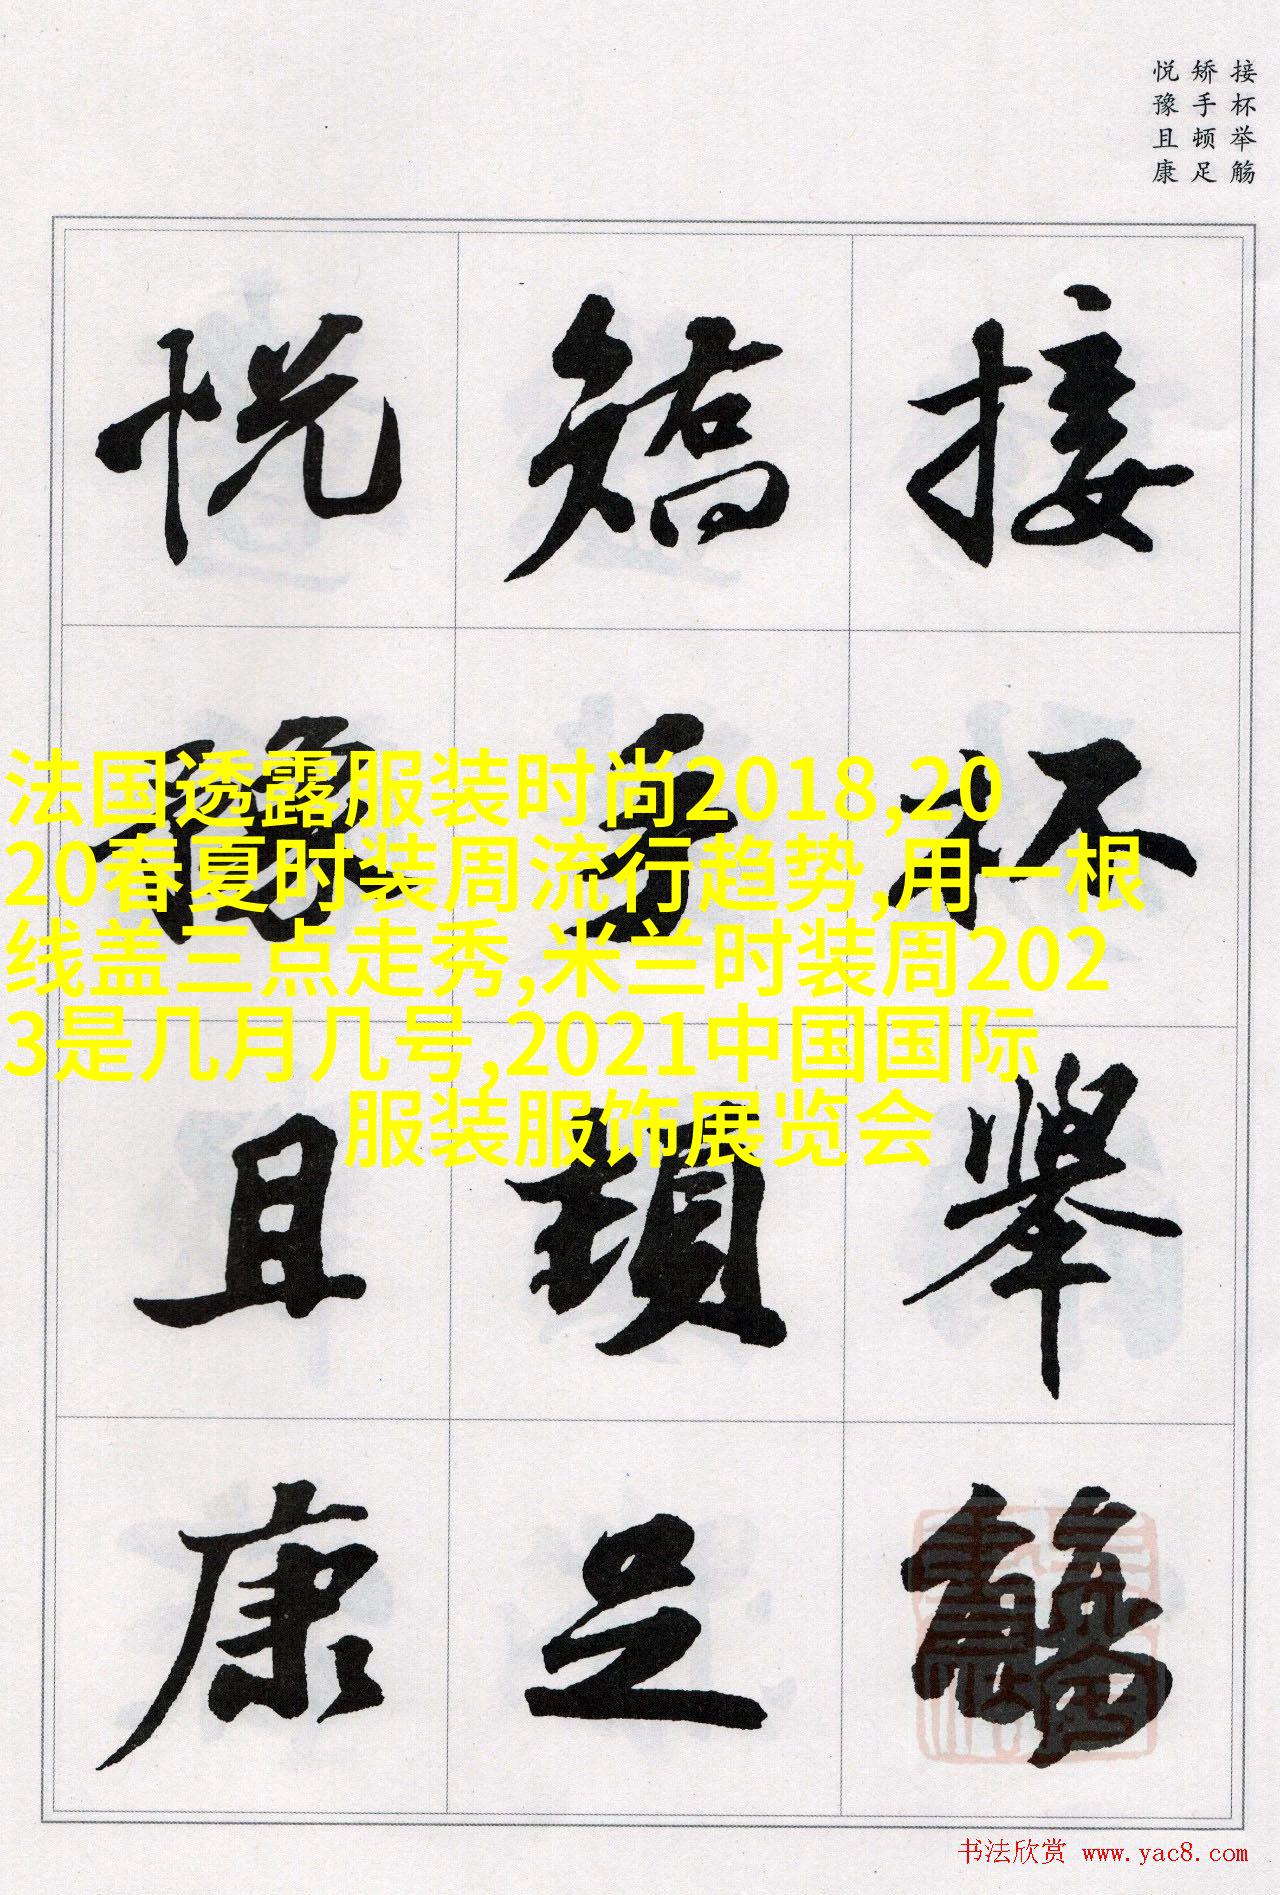 接杯举觞
矫手顿足
悦豫且康
接杯舉觴
矯手頓足
悦豫且康
法国透露服装时尚2018,20
20春夏时装周流行趋势,用一根
线盖三点走秀,米兰时装周202
3是几月几号,2021中国国际
服装服饰展览会
书法欣赏 www.yac8.com